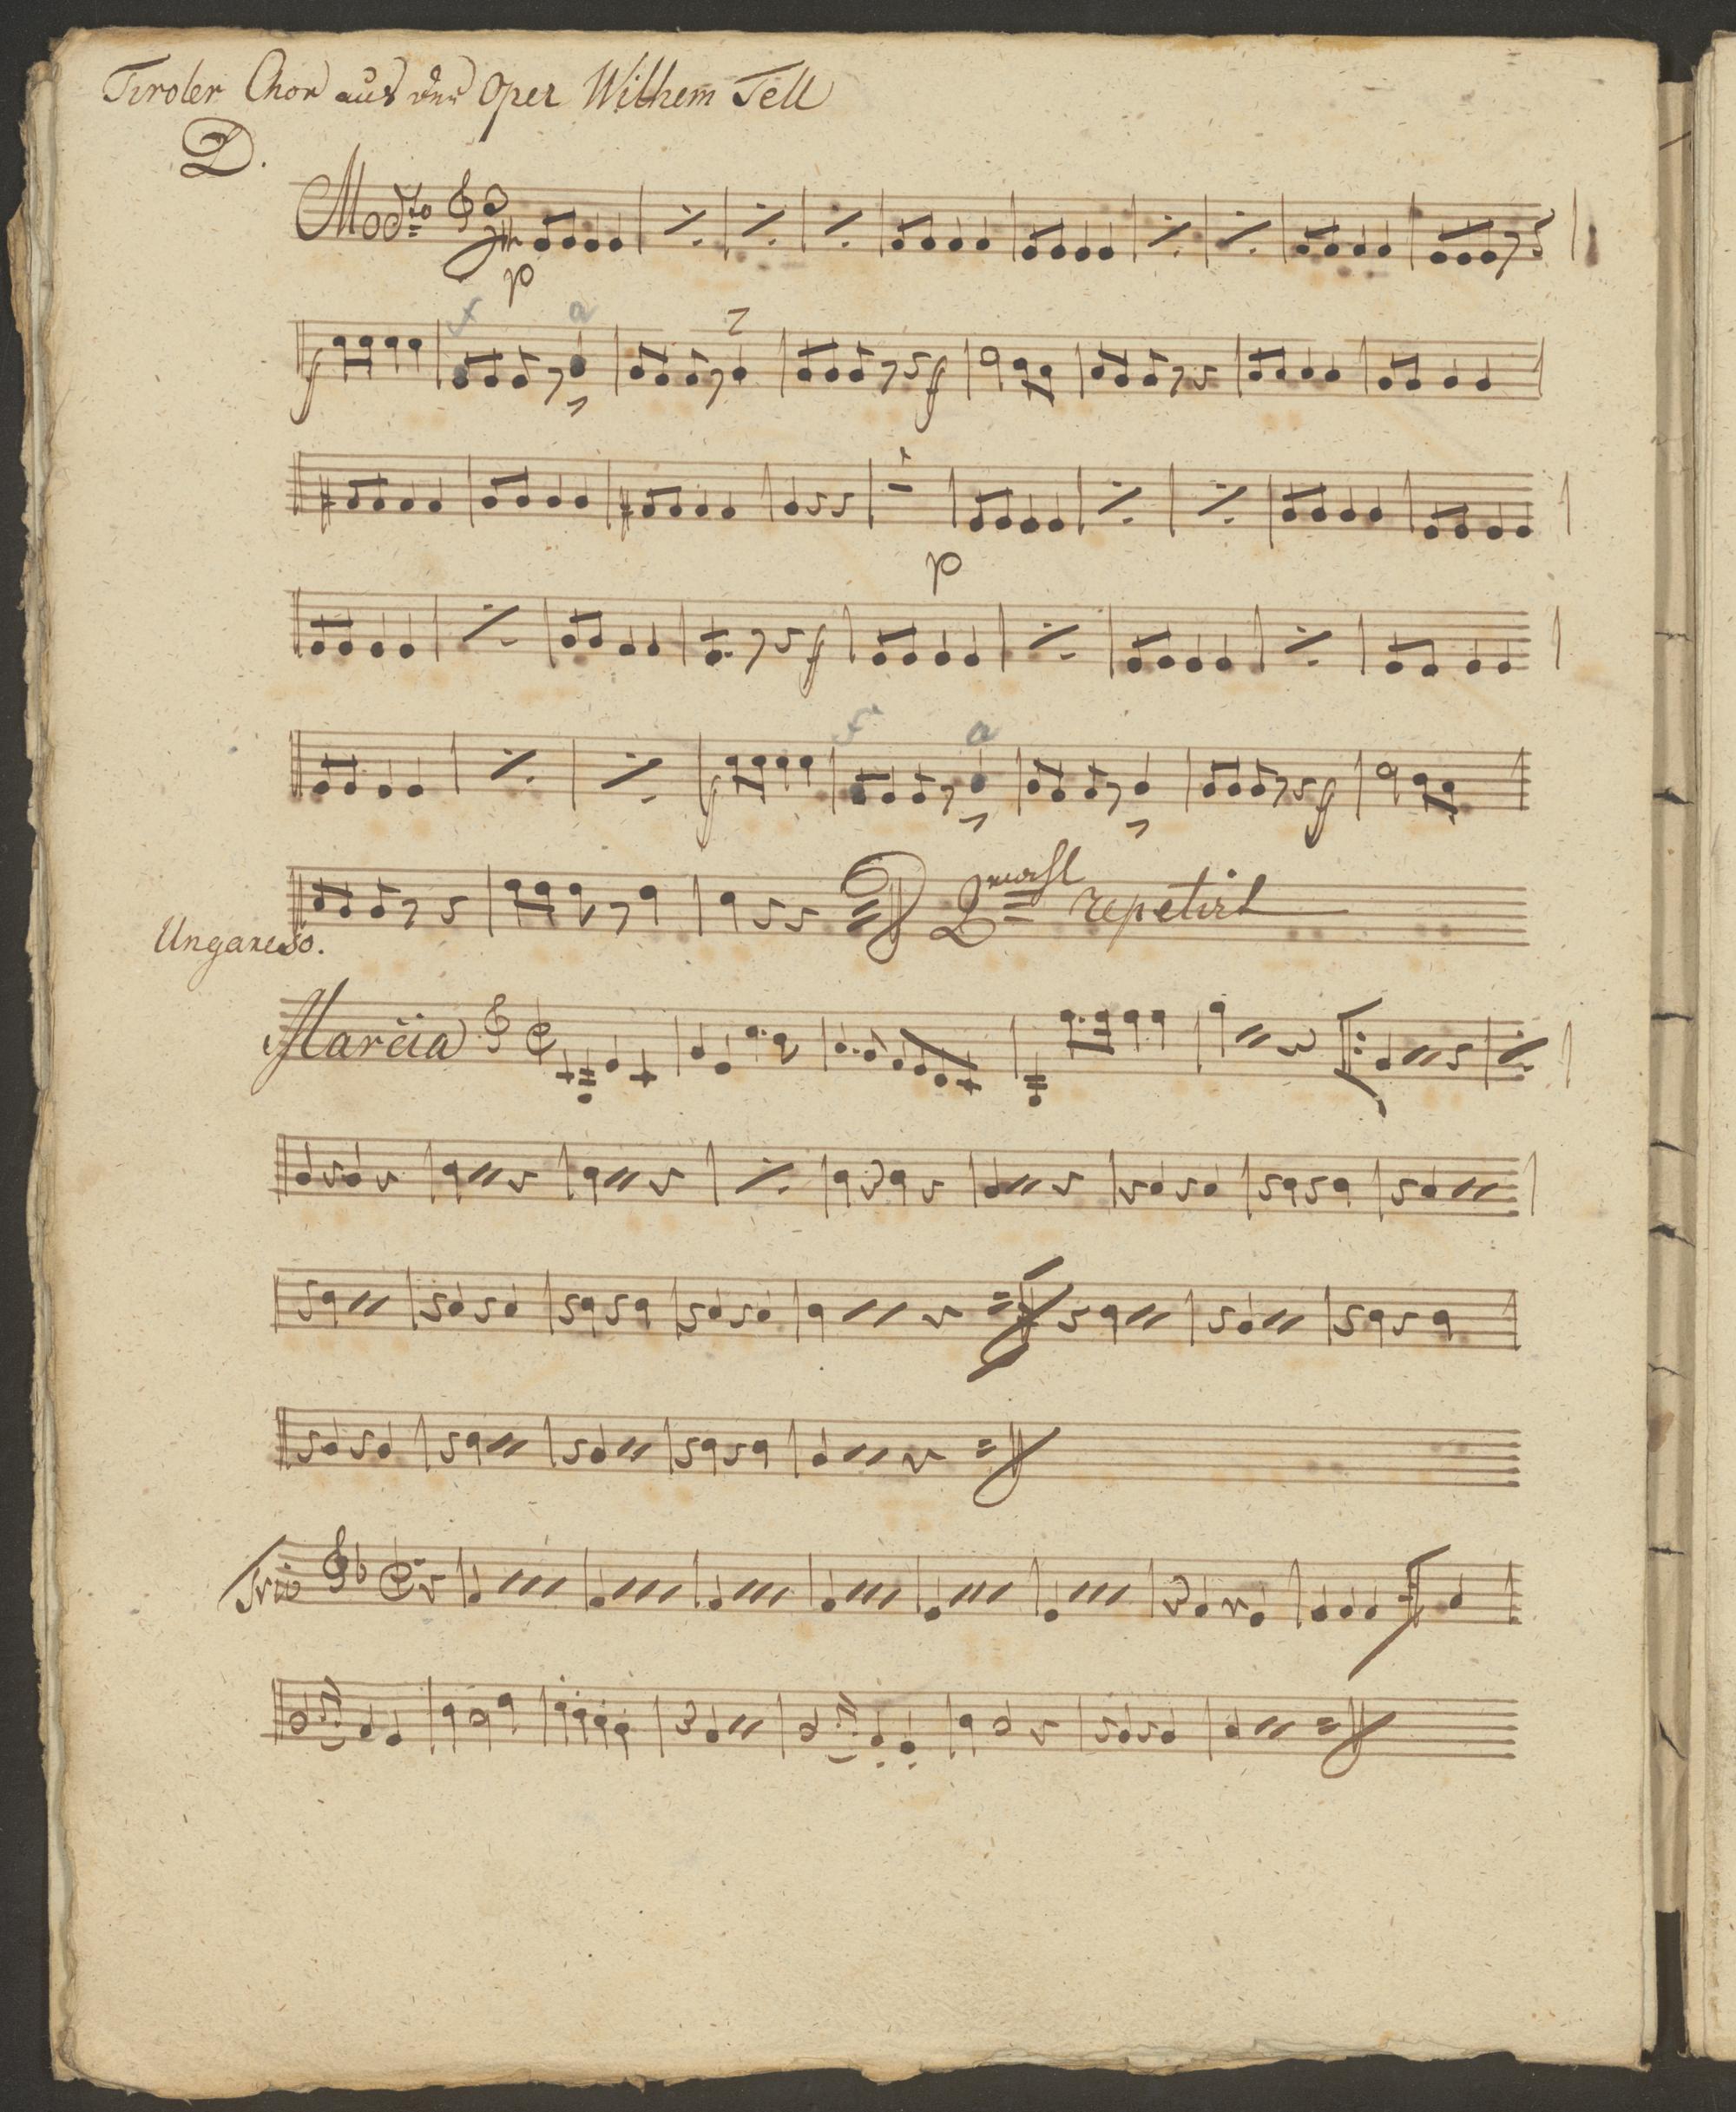 Tiroler Chor aus der Oper Wilhem Tell
D.
Modto
p
f a
f ff
p
ff
f a
f ff
2mahl repetirt
Ungareso.
Marcia
Trio